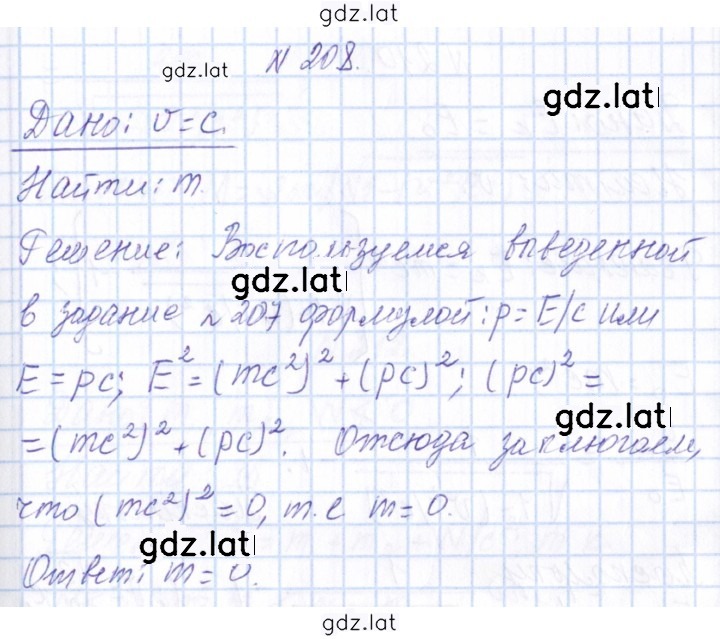 gdz.lat
N 208.
gdz.lat
gdz.lat
Дано: v=c.
Найти: m.
Решение: Воспользуемся выведенной
gdz.lat
в задание N 207 формулой: p=E/c или
E=pc; E²=(mc²)²+(pc)²; (pc)²=
gdz.lat
=(mc²)²+(pc)². Отсюда заключаем,
что (mc²)²=0, т.е m=0.
gdz.lat
Ответ: m=0.
gdz.lat